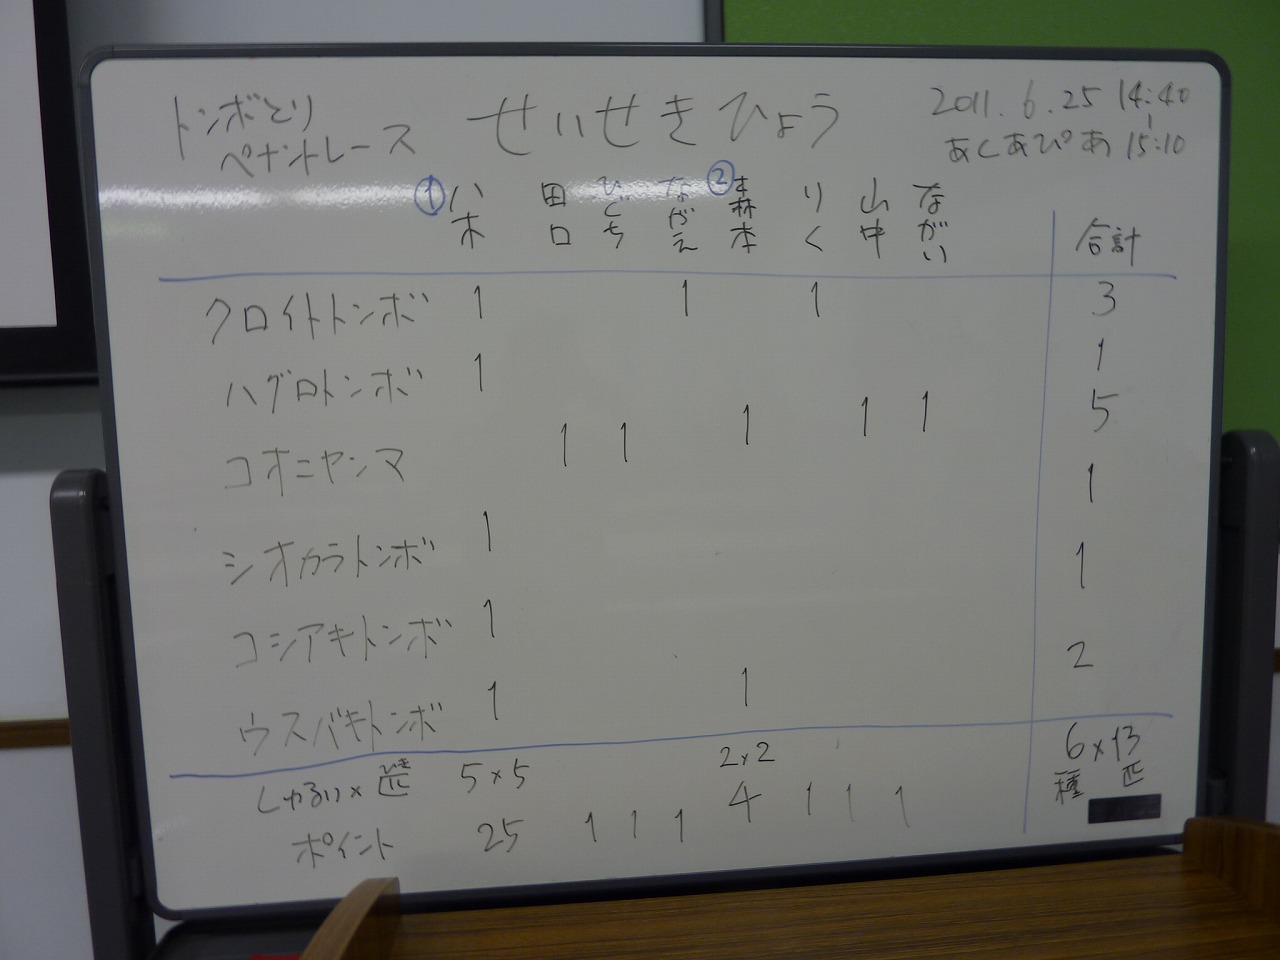 トンボとり
ペナントレース
せいせきひょう
2011.6.25 14:40
|
あくあぴあ 15:10
① 八木 田口 ひぐち ながえ ② 森本 りく 山中 ながい 合計
クロイトトンボ 1 1 1 3
ハグロトンボ 1 1
コオニヤンマ 1 1 1 1 1 5
シオカラトンボ 1 1
コシアキトンボ 1 1
ウスバキトンボ 1 1 2
しゅるい×匹 びき 5×5 2×2 6種×13匹
ポイント 25 1 1 1 4 1 1 1